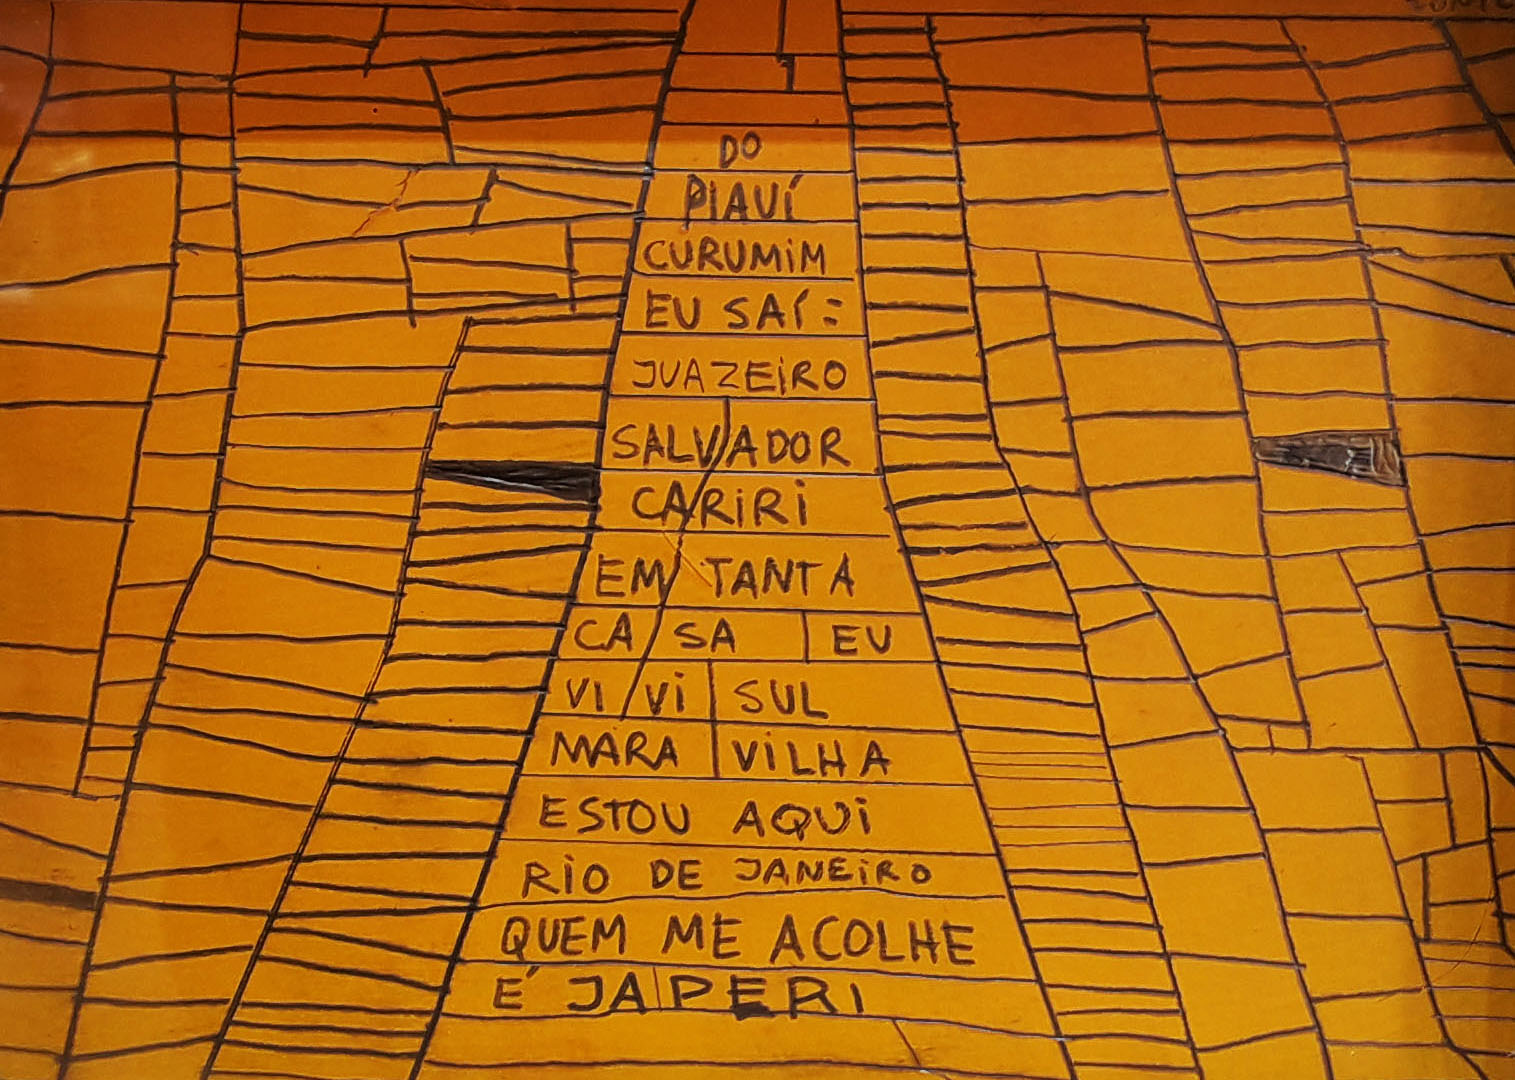 DO
PIAUÍ
CURUMIM
EU SAÍ:
JUAZEIRO
SALVADOR
CARIRI
EM TANTA
CA SA EU
VI VI SUL
MARA VILHA
ESTOU AQUI
RIO DE JANEIRO
QUEM ME ACOLHE
É JAPERI